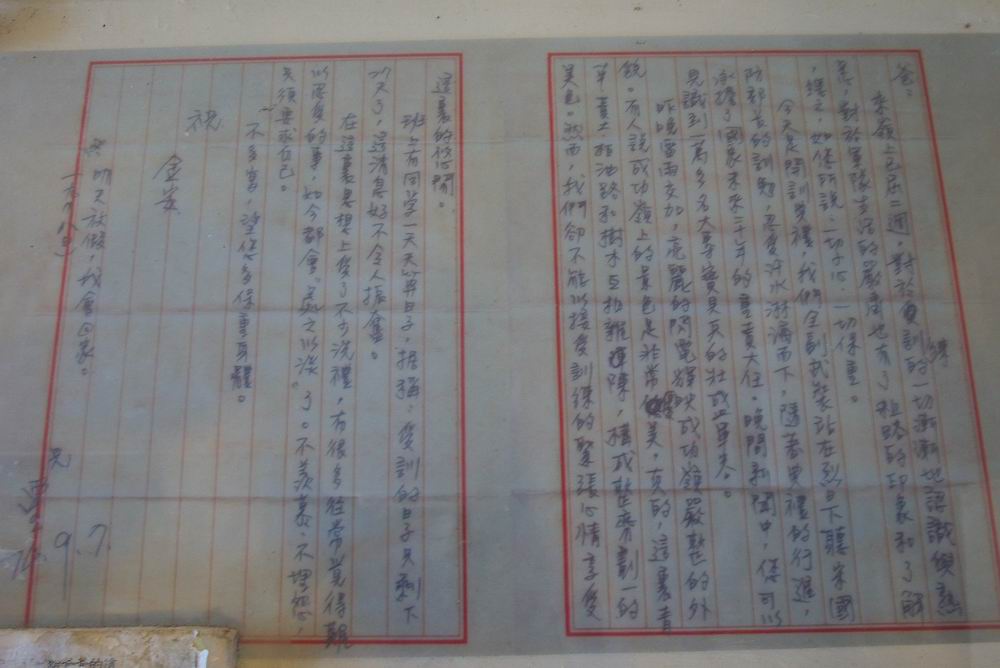 爸:
來嶺上已屆二週,對於受訓的一切漸漸地認識傾慕
,對於軍隊生活的嚴肅也有了粗略的印象和了解
,總之,如你所說,一切平心,一切保重。
今天是開訓典禮,我們全副武裝站在烈日下聽宋國
防部長的訓勉,忍受汗水淋漓而下,隨著典禮的行進,
承擔了國家未來二十年的重責大任。晚間新聞中,你可以
見識到一萬多名大專寶貝兵的壯盛軍容。
昨晚雷雨交加,亮麗的閃電輝映成功嶺嚴整的外
貌。有人說成功嶺上的景色是非常優美,真的,這裏青
草畫上柏油路和樹木互相雜陳,構成整齊劃一的
美色。然而,我們卻不能以接受訓練的緊張心情享受
這裏的悠閒。
班上有同学一天天算日子,据稱,受訓的日子只剩下
天了,這消息好不令人振奮。
在這裏思想上受了不少洗禮,有很多從常覺得難
以忍受的事,如今都會"處之以淡"了。不羨慕、不埋怨,
只須要求自己。
不多寫,望您多保重身體。
祝
金安
兒
9.7.
明天放假,我會回家。